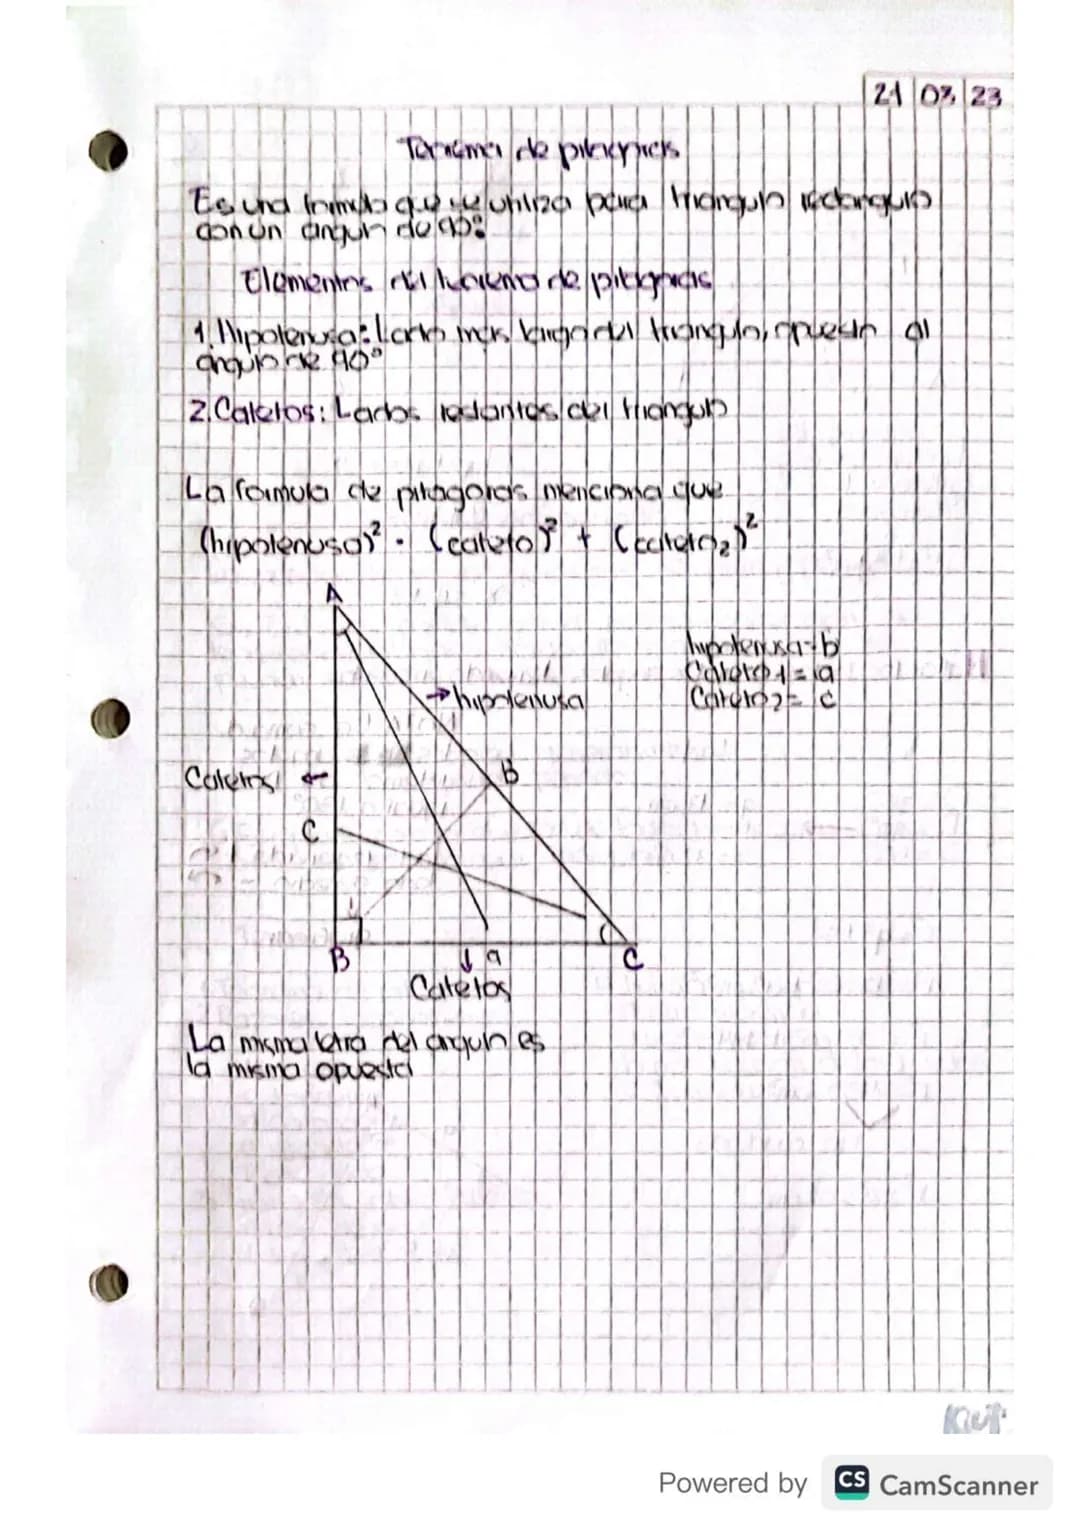 21 03 23
Teorema de pitagoras
Es una formula que se utiliza para triangulo rectangulo
con un angulo de 90°
Elementos del teorema de pitagoras
1. Hipotenusa: Lado mas largo del triangulo, opuesto al
angulo de 90°
2. Catetos: Lados restantes del triangulo
La formula de pitagoras menciona que
(hipotenusa)² = (cateto)² + (cateto₂)²
A
hipotenusa = b
Cateto 1 = a
→ hipotenusa
Cateto 2 = c
Catetos ←
B
C
B
↓ a
C
Catetos
La misma letra del angulo es
la misma opuesta
Powered by CS CamScanner